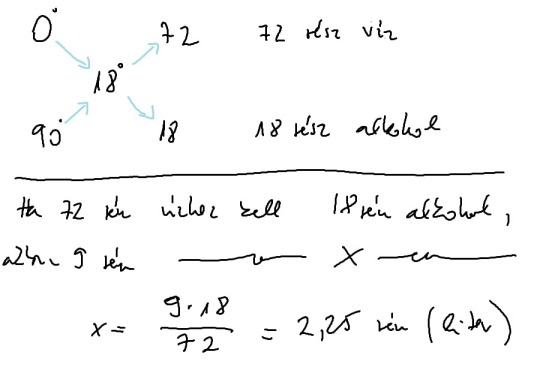 0° 72 72 rész víz
18°
90° 18 18 rész alkohol
Ha 72 rész vízhez kell 18 rész alkohol,
akkor 9 rész —〃— X —〃—
x = 9·18 / 72 = 2,25 rész (liter)